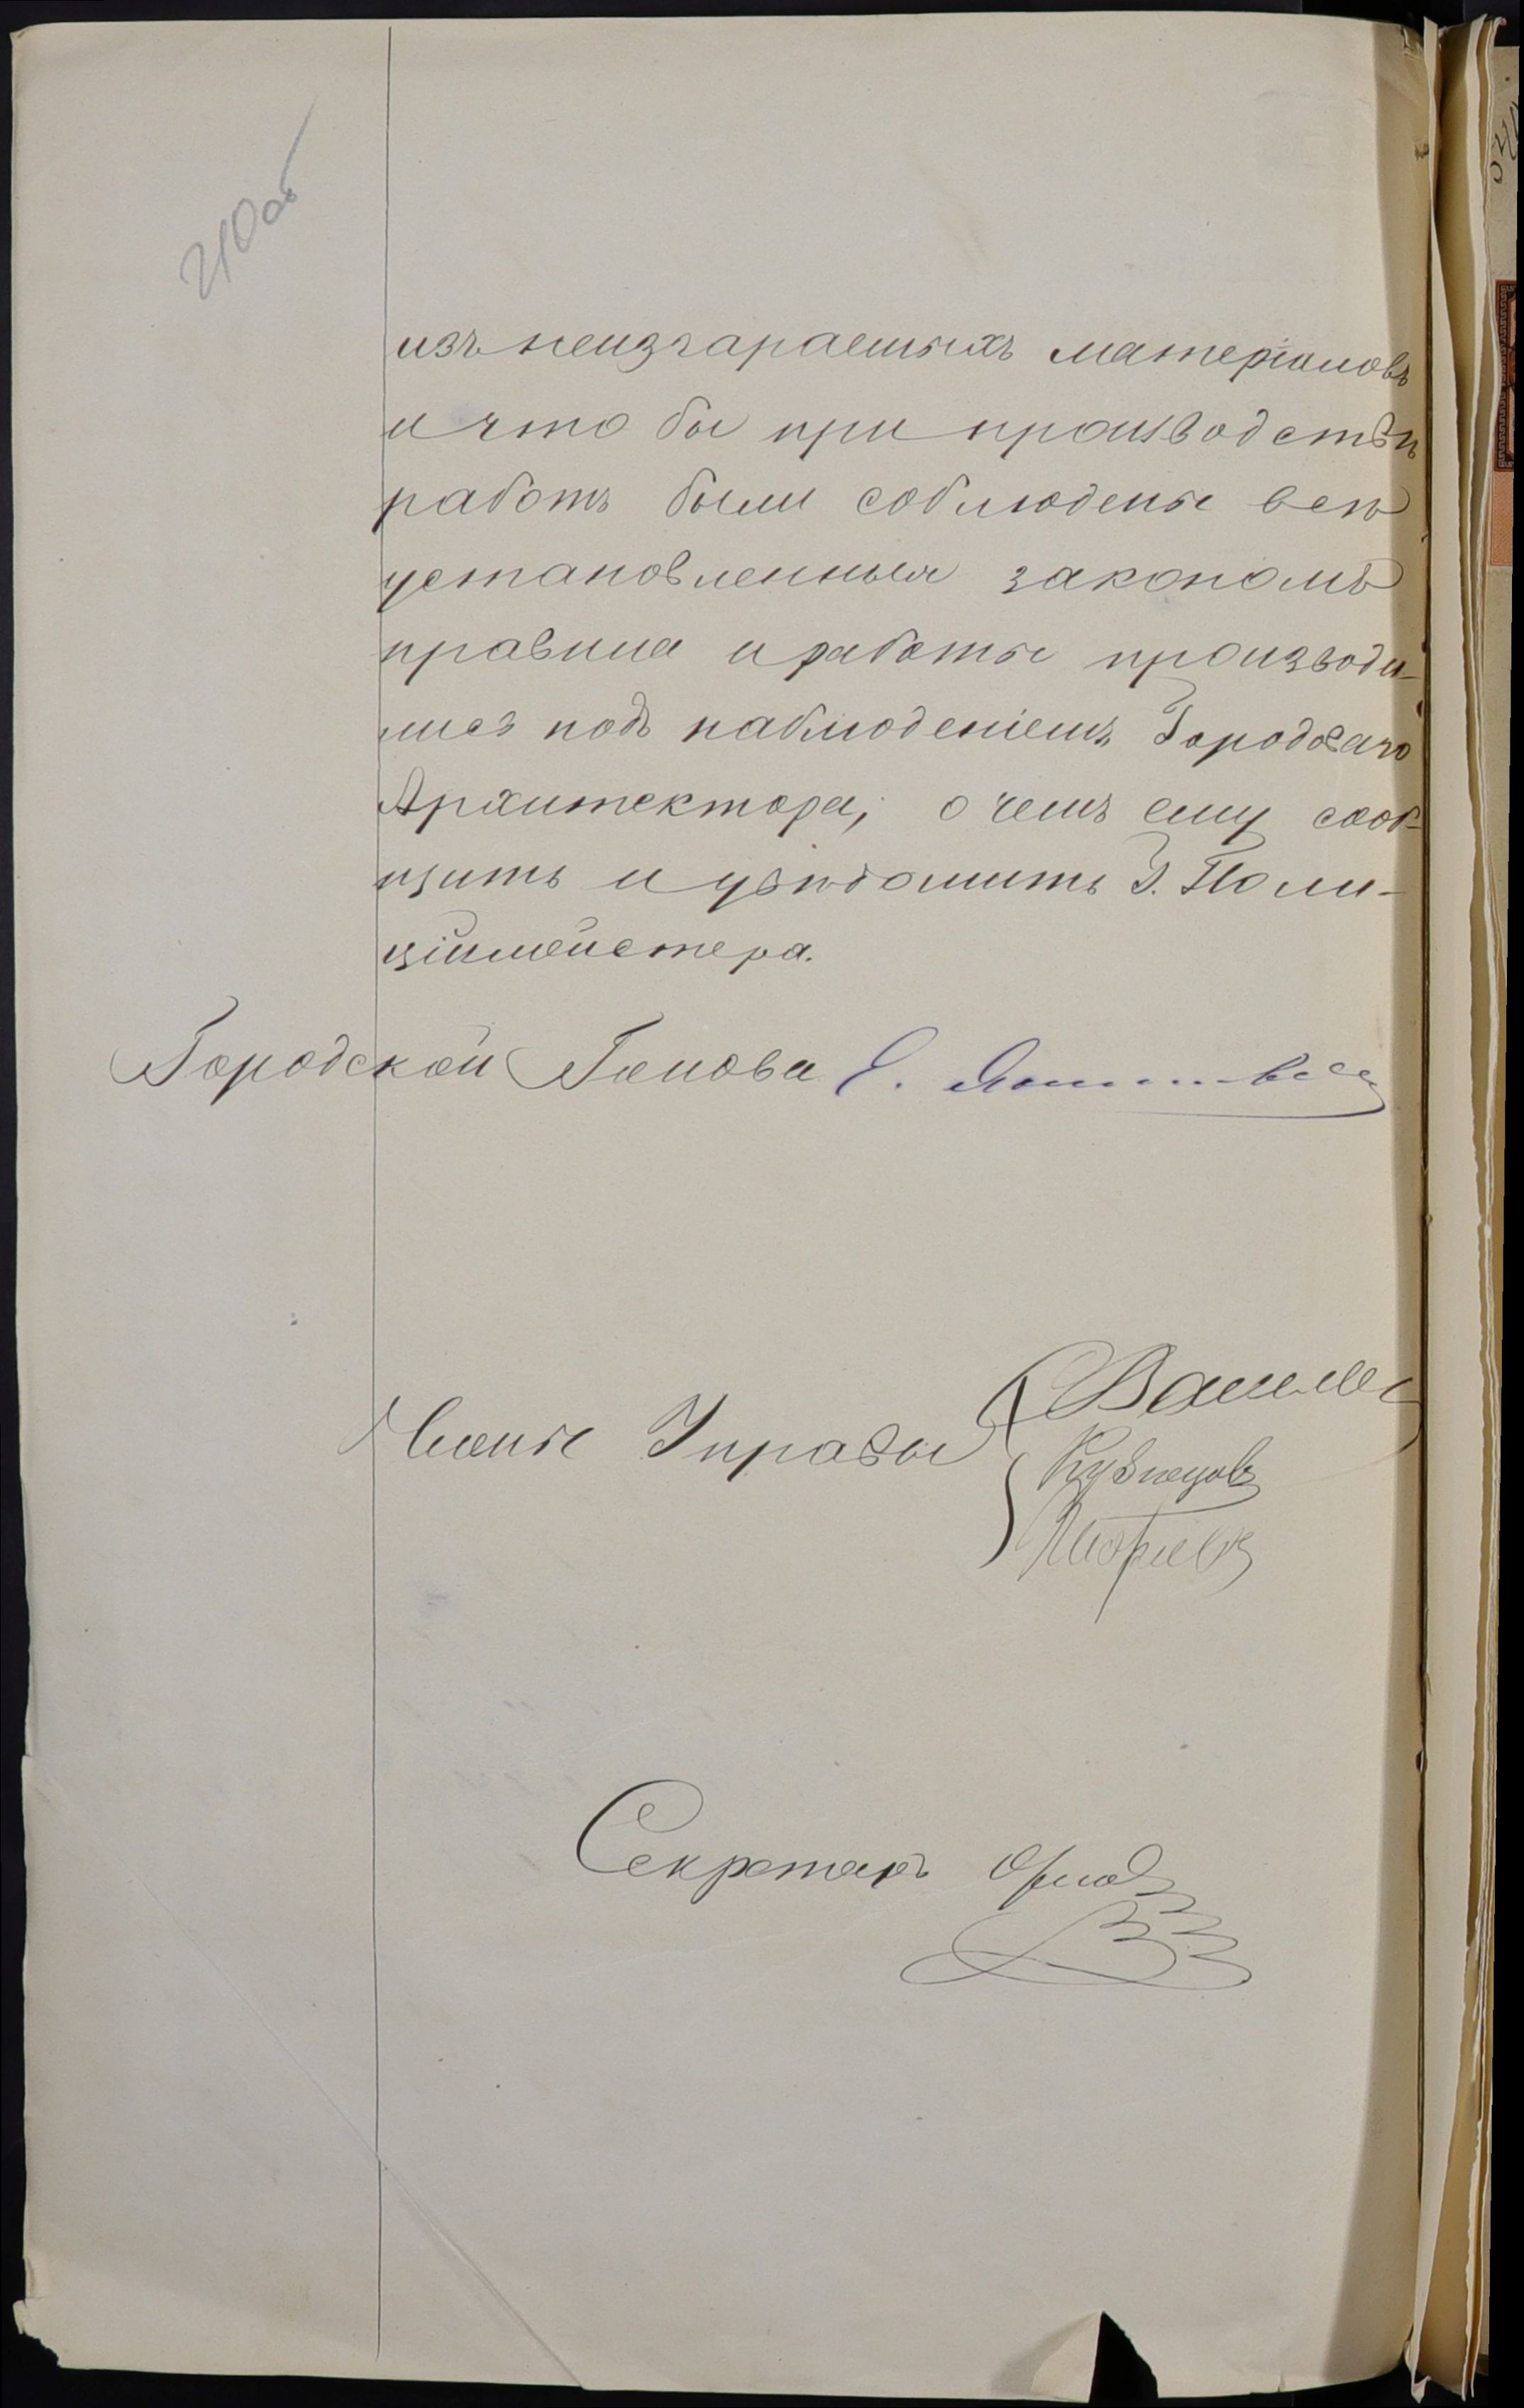 210об
изъ неизгараемыхъ матеріаловъ
и что бы при производствѣ
работъ были соблюдены всѣ
установленныя закономъ
правила и работы производи-
лись подъ наблюденіемъ Городскаго
Архитектора, о чемъ ему сооб-
щить и увѣдомить Г. Поли-
ціймейстера.
Городской Голова Е.
Члены Управы
Кузнецовъ
Секретарь Орловъ